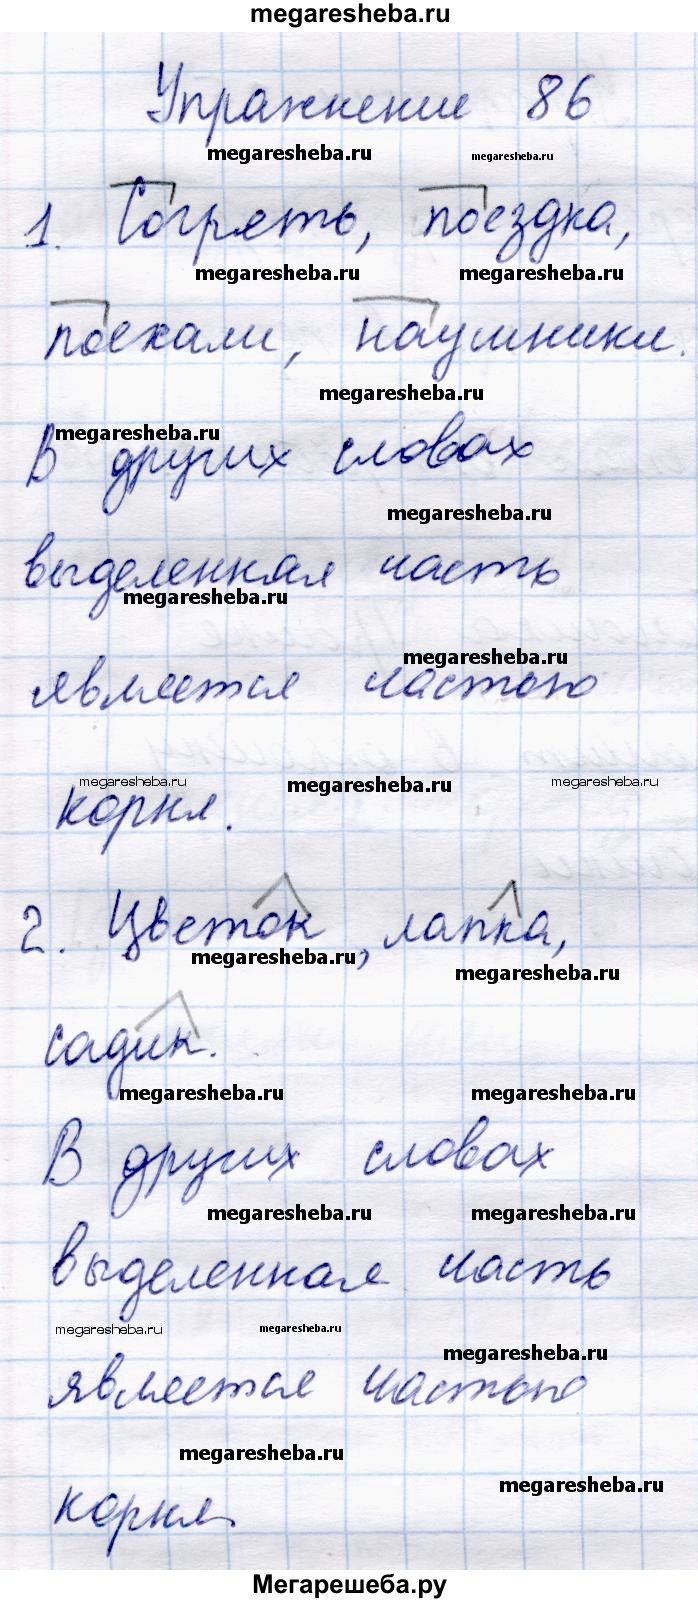 megaresheba.ru
Упражнение 86
megaresheba.ru megaresheba.ru
1. Согреть, поездка,
megaresheba.ru megaresheba.ru
поехали, наушники.
megaresheba.ru
megaresheba.ru
В других словах
megaresheba.ru
выделенная часть
megaresheba.ru
megaresheba.ru
является частью
megaresheba.ru megaresheba.ru megaresheba.ru
корня.
2. Цветок, лапка,
megaresheba.ru megaresheba.ru
садик.
megaresheba.ru megaresheba.ru
В других словах
megaresheba.ru megaresheba.ru
выделенная часть
megaresheba.ru megaresheba.ru
megaresheba.ru
является частью
megaresheba.ru
megaresheba.ru
корня.
Мегарешеба.ру